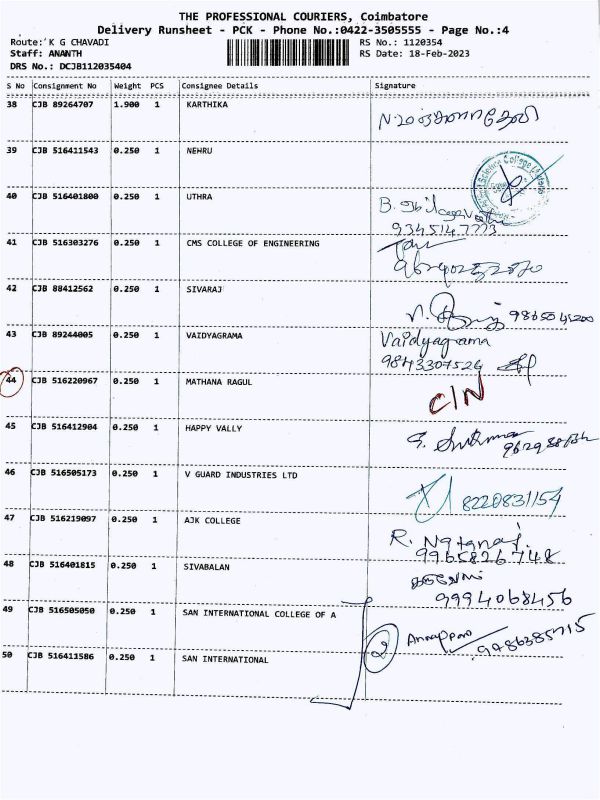 THE PROFESSIONAL COURIERS, Coimbatore
Delivery Runsheet - PCK - Phone No.:0422-3505555 - Page No.:4
Route: K G CHAVADI RS No.: 1120354
Staff: ANANTH RS Date: 18-Feb-2023
DRS No.: DCJB112035404
S No Consignment No Weight PCS Consignee Details Signature
38 CJB 89264707 1.900 1 KARTHIKA
39 CJB 516411543 0.250 1 NEHRU
40 CJB 516401800 0.250 1 UTHRA
9345147773
41 CJB 516303276 0.250 1 CMS COLLEGE OF ENGINEERING
42 CJB 88412562 0.250 1 SIVARAJ
43 CJB 89244005 0.250 1 VAIDYAGRAMA Vaidyagrama
9843307524
44 CJB 516220967 0.250 1 MATHANA RAGUL C/N
45 CJB 516412904 0.250 1 HAPPY VALLY
46 CJB 516505173 0.250 1 V GUARD INDUSTRIES LTD 8220831154
47 CJB 516219097 0.250 1 AJK COLLEGE R. Nataraj.
9965826748
48 CJB 516401815 0.250 1 SIVABALAN
9994068456
49 CJB 516505050 0.250 1 SAN INTERNATIONAL COLLEGE OF A
2 9486385715
50 CJB 516411586 0.250 1 SAN INTERNATIONAL